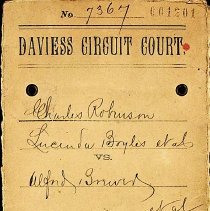 No 7367 001201
DAVIESS CIRCUIT COURT.
Charles Robinson
Lucinda Boyles et al
VS.
Alford
et al